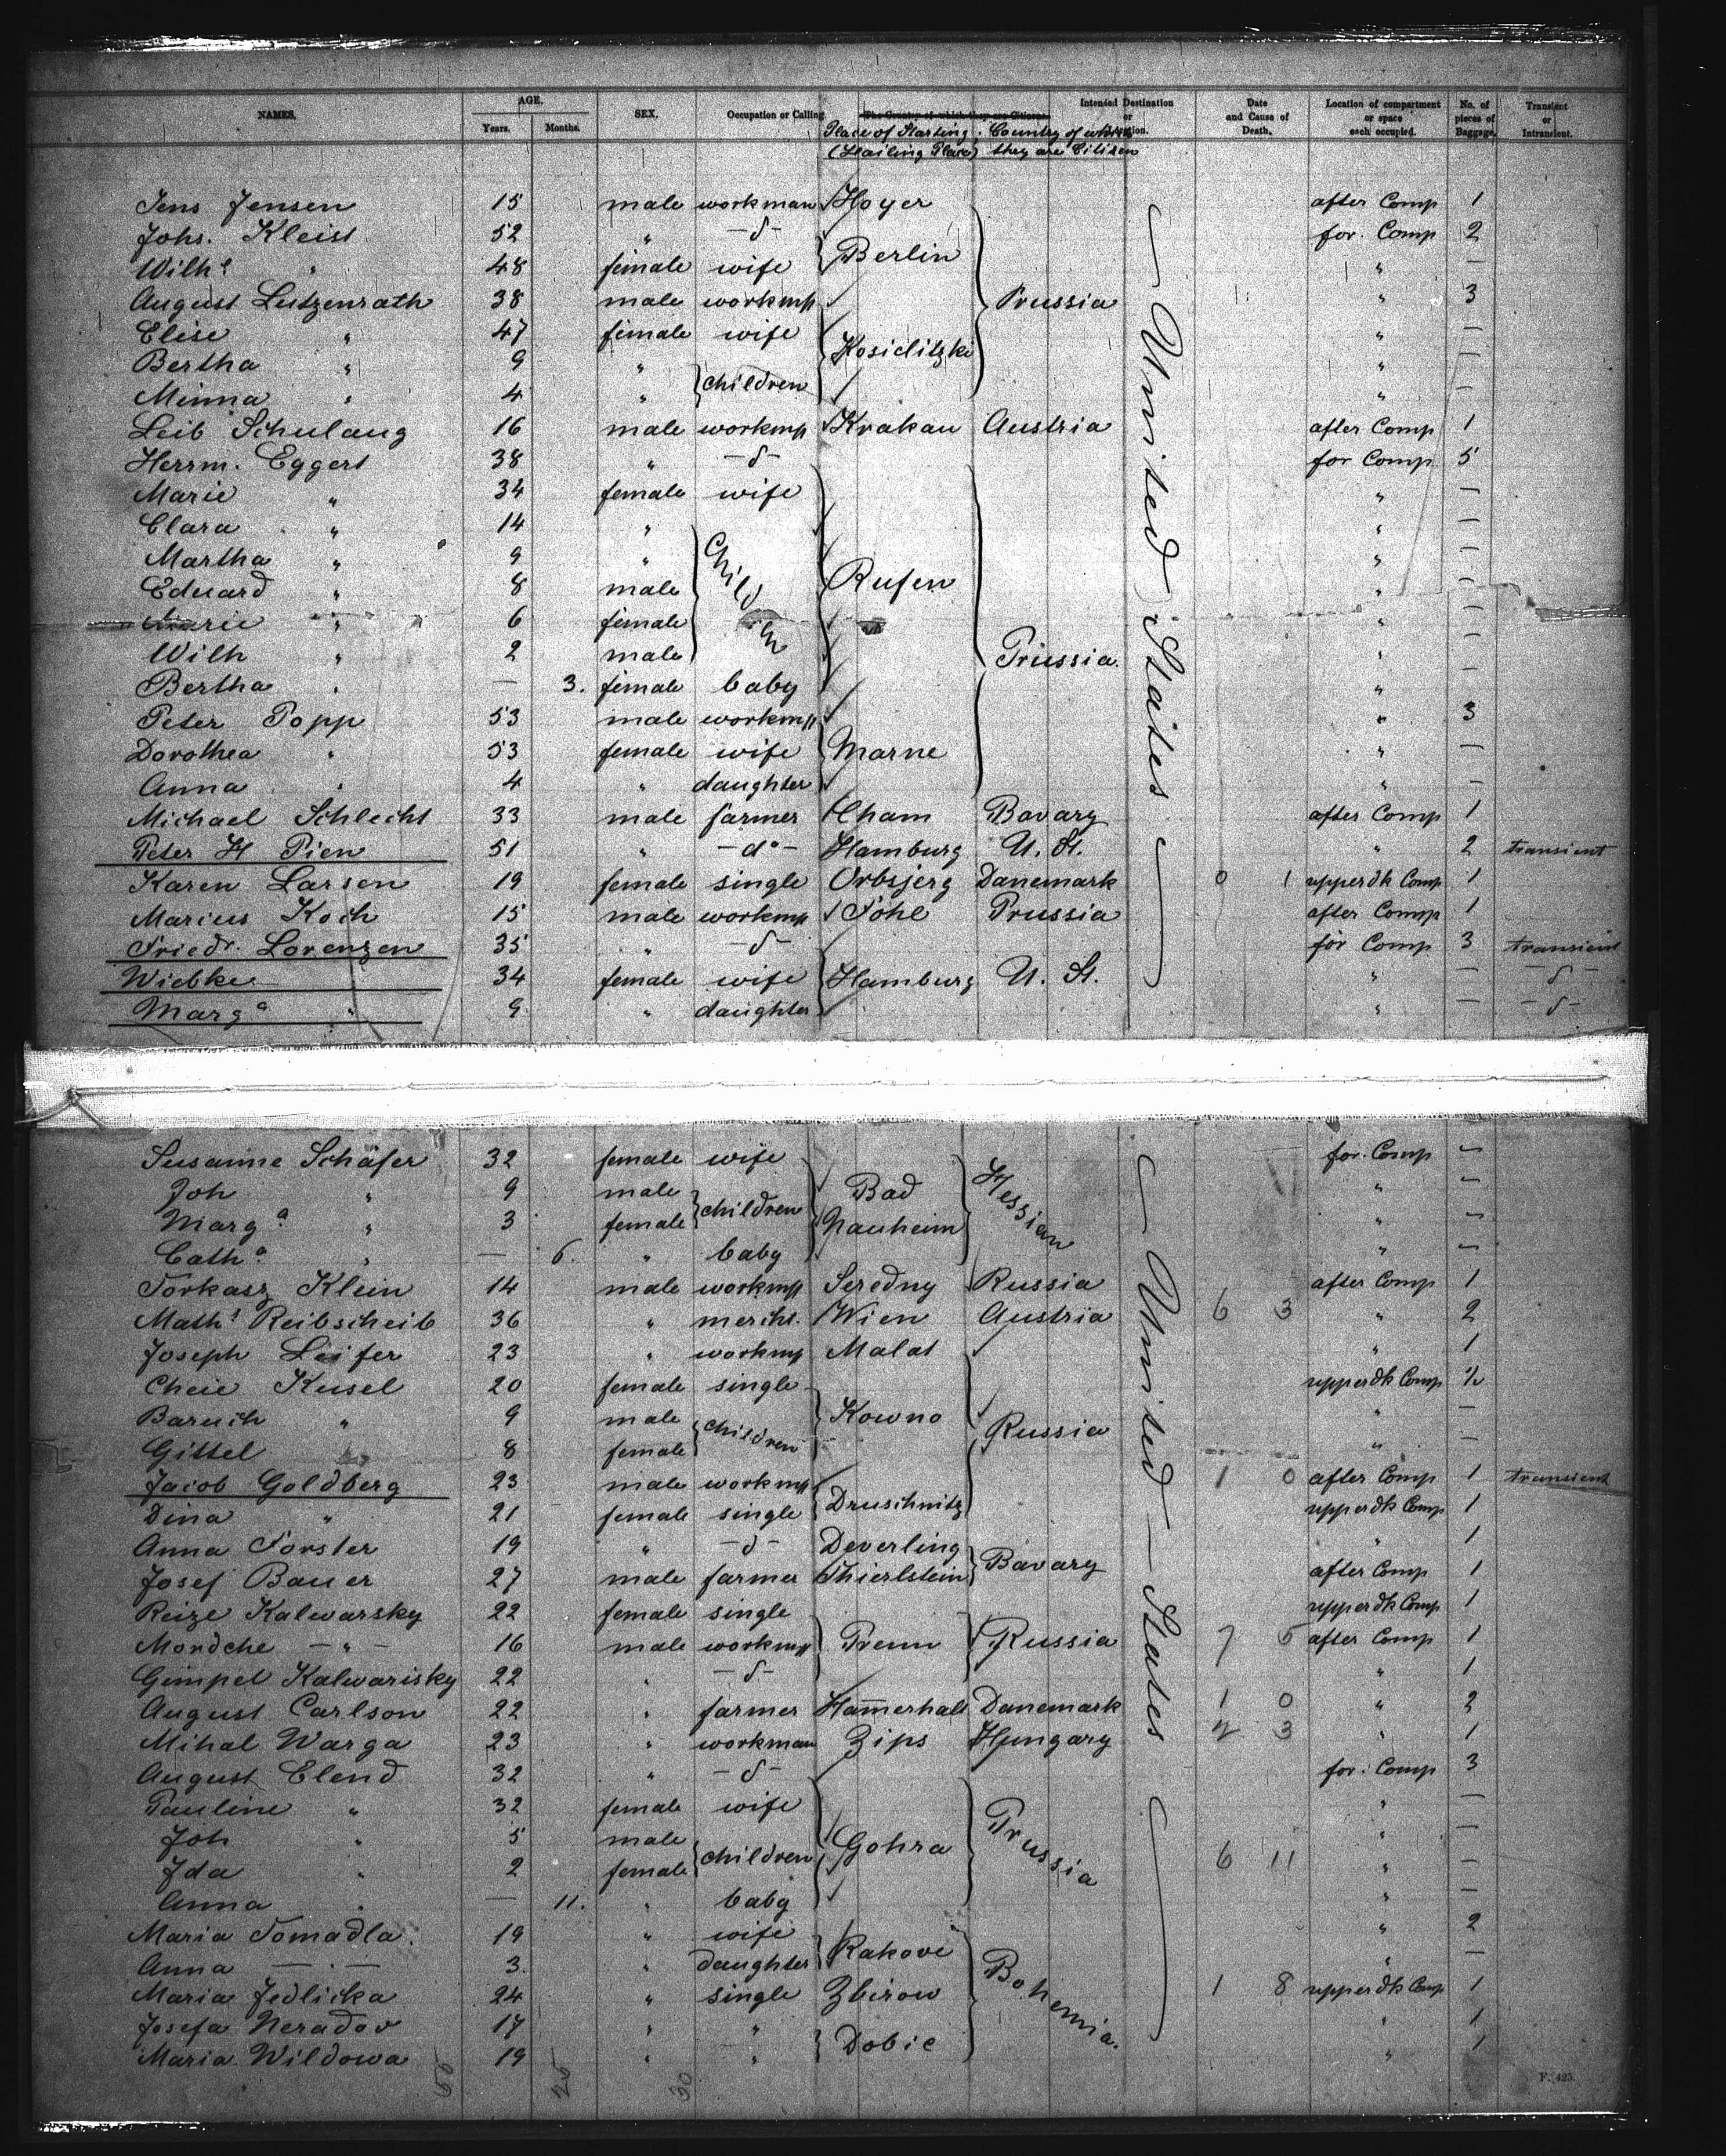 NAMES. AGE. Years. Months. SEX. Occupation or Calling. The Country of which they are Citizens. Intended Destination or Location. Date and Cause of Death. Location of compartment or space each occupied. No. of pieces of Baggage. Transient or Intransient.
Place of Starting. Country of which
(Hailing Place) they are Citizen
Jens Jensen 15 male workman Hoyer after Comp 1
Johs. Kleist 52 " -d- for. Comp 2
Wilhe " 48 female wife Berlin " —
August Lutzenrath 38 male workmn Prussia " 3
Elise " 47 female wife " —
Bertha " 9 " Kosiclitzki " —
Minna " 4 " children " —
Leib Schulang 16 male workmn Krakau Austria after Comp 1
Herrm. Eggert 38 " -d- for Comp 5
Marie " 34 female wife " —
Clara " 14 " " —
Martha " 9 " children " —
Eduard " 8 male Rufen " —
Marie " 6 female " —
Wilh " 2 male Prussia. " —
Bertha " — 3. female baby " —
Peter Popp 53 male workmn " 3
Dorothea " 53 female wife Marne " —
Anna " 4 " daughter " —
Michael Schlecht 33 male farmer Cham Bavary after Comp 1
Peter H Pien 51 " -do- Hamburg U. St. " 2 transient
Karen Larsen 19 female single Orbsjerg Danemark 0 1 upperdk Comp 1
Marius Koch 15 male workmn Föhl Prussia after Comp 1
Friedr. Lorenzen 35 " -d- for Comp 3 transient
Wiebke 34 female wife Hamburg U. St. " — -d-
Marga " 9 " daughter " — -d-
United States
Susanne Schäfer 32 female wife for. Comp —
Joh " 9 male children Bad Hessian " —
Marga " 3 female Nauheim " —
Catha " — 6. " baby " —
Torkasz Klein 14 male workmn Seredny Russia after Comp 1
Maths Reibscheib 36 " mercht. Wien Austria 6 3 " 2
Joseph Leifer 23 " workmn Malat " 1
Cheie Kusel 20 female single upperdk Comp 1/2
Baruch " 9 male children Kowno Russia " —
Gittel 8 female " —
Jacob Goldberg 23 male workmn 1 0 after Comp 1 transient
Dina " 21 female single Druschnitz upperdk Comp 1
Anna Forster 19 " -d- Deverling " 1
Josef Bauer 27 male farmer Thierlstein Bavary after Comp 1
Reize Kalwarsky 22 female single upperdk Comp 1
Mordche — " — 16 male workmn Prenn Russia 7 5 after Comp 1
Gimpel Kalwarisky 22 " -d- " 1
August Carlson 22 " farmer Ham̄erhalt Danemark 1 0 " 2
Mihal Warga 23 " workman Zips Hungary 4 3 " 1
August Elend 32 " -d- for. Comp 3
Pauline " 32 female wife " —
Joh " 5 male children Gohra Prussia " —
Ida " 2 female 6 11 " —
Anna " — 11. " baby " —
Maria Tomadla. 19 " wife " 2
Anna — " — 3. " daughter Rakove " —
Maria Jedlicka 24 " single Zbirow Bohemia. 1 8 upperdk Comp 1
Josefa Neradov 17 " " " 1
Maria Wildowa 19 " " Dobic " 1
United States
25 30
F. 425.